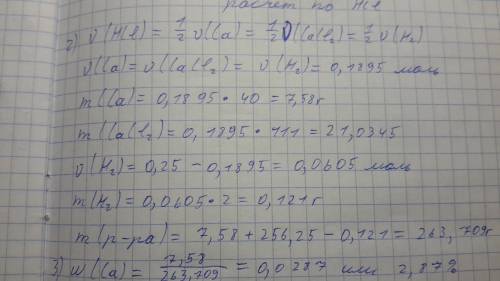 расчет по HCl
2) ν(HCl) = 1/2 ν(Ca) = 1/2 ν(CaCl₂) = 1/2 ν(H₂)
ν(Ca) = ν(CaCl₂) = ν(H₂) = 0,1895 моль
m(Ca) = 0,1895 • 40 = 7,58г
m(CaCl₂) = 0,1895 • 111 = 21,0345
ν(H₂) = 0,25 − 0,1895 = 0,0605 моль
m(H₂) = 0,0605 • 2 = 0,121г
m(р-ра) = 7,58 + 256,25 − 0,121 = 263,709г
3) w(Ca) = 7,58/263,709 = 0,0287 или 2,87%